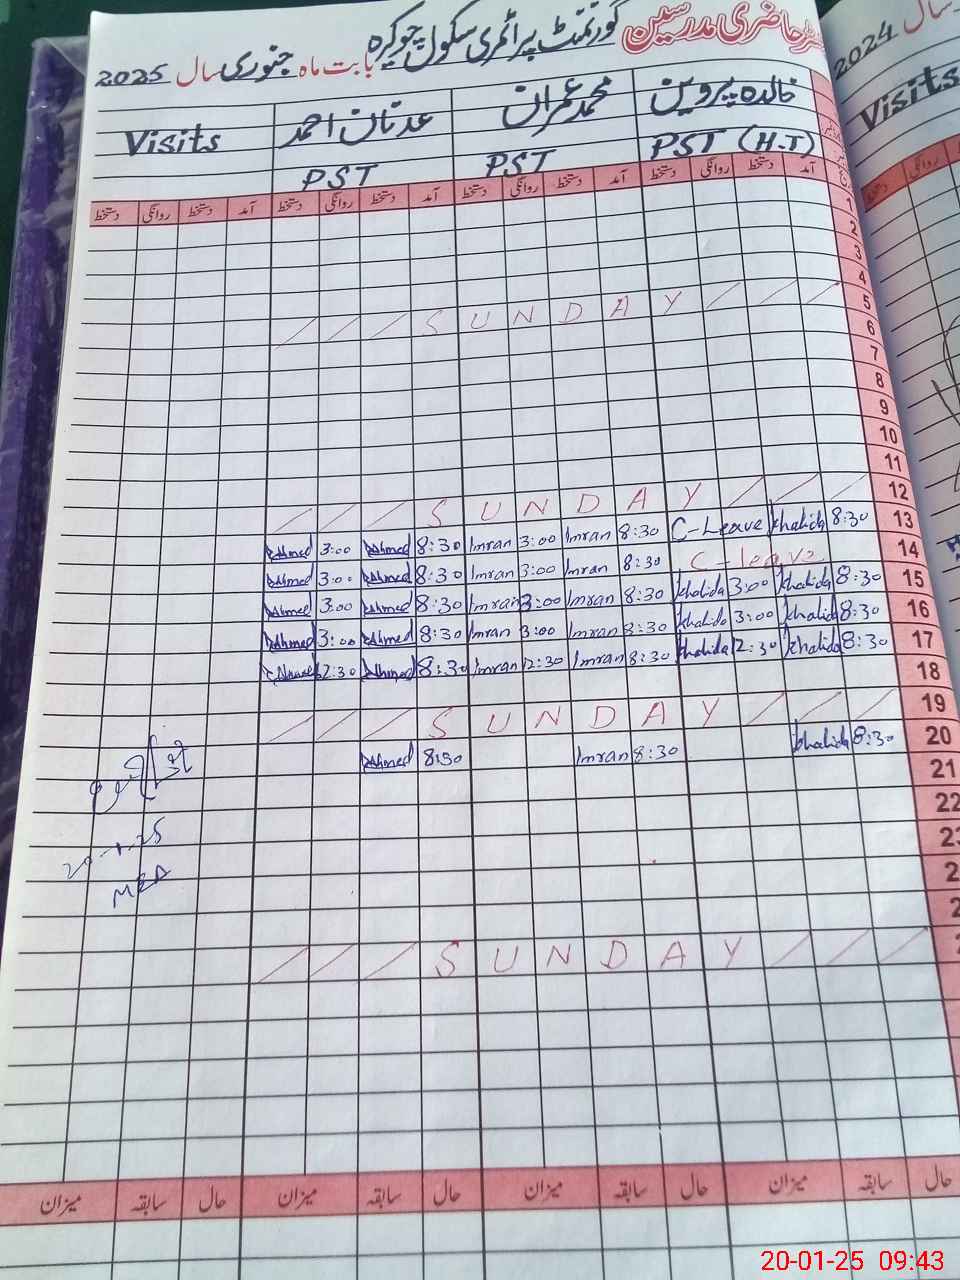 رجسٹر حاضری مدرسین گورنمنٹ پرائمری سکول چوکرہ بابت ماہ جنوری سال 2025
خالدہ پروین محمد عمران عدنان احمد Visits
PST (H.T) PST PST
آمد دستخط روانگی دستخط آمد دستخط روانگی دستخط آمد دستخط روانگی دستخط آمد دستخط روانگی دستخط
1
2
3
4
5 / / / S U N D A Y / / /
6
7
8
9
10
11
12 / / / S U N D A Y / / /
13 8:30 Khalida C-Leave 8:30 Imran 3:00 Imran 8:30 Ahmed 3:00 Ahmed
14 C-leave 8:30 Imran 3:00 Imran 8:30 Ahmed 3:00 Ahmed
15 8:30 Khalida 3:00 Khalida 8:30 Imran 3:00 Imran 8:30 Ahmed 3:00 Ahmed
16 8:30 Khalida 3:00 Khalida 8:30 Imran 3:00 Imran 8:30 Ahmed 3:00 Ahmed
17 8:30 Khalida 12:30 Khalida 8:30 Imran 12:30 Imran 8:30 Ahmed 12:30 Ahmed
18
19 / / / S U N D A Y / / /
20 8:30 Khalida 8:30 Imran 8:30 Ahmed
21
22
23
2
2
2 / / / S U N D A Y / / /
20-1-25
MEA
حال سابقہ میزان حال سابقہ میزان حال سابقہ میزان حال سابقہ میزان
سال 2024
Visits
روانگی دستخط
20-01-25 09:43